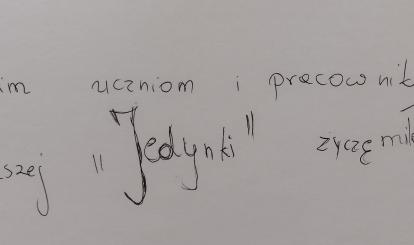 im uczniom i pracownik
szej "Jedynki" życzę mił